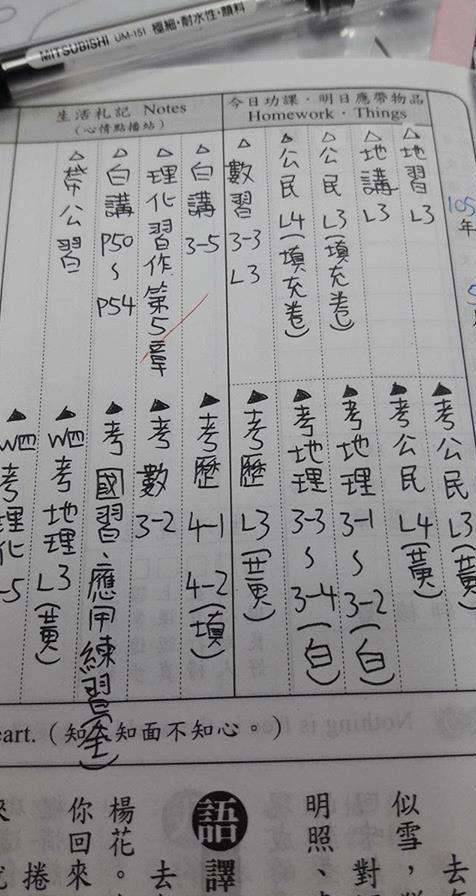 MITSUBISHI UM-151 極細・耐水性・顏料
今日功課・明日應帶物品
Homework・Things
生活札記 Notes
(心情點播站)
105
年
△地習 L3
△地講 L3
△公民 L3(填充卷)
△公民 L4(填充卷)
△數習 3-3 L3
△白講 3-5
△理化習作第5章
△白講 P50~P54
△帶公習
▲考公民 L3(黃)
▲考公民 L4(黃)
▲考地理 3-1~3-2(白)
▲考地理 3-3~3-4(白)
▲考歷 L3(黃)
▲考歷 4-1 4-2(填)
▲考數 3-2
▲考國習、應用練習(全)
▲W四考地理 L3(黃)
▲W四考理化
-5
eart.(知人知面不知心。)
似雪,
明照、
語譯
楊花。
你回來
捲